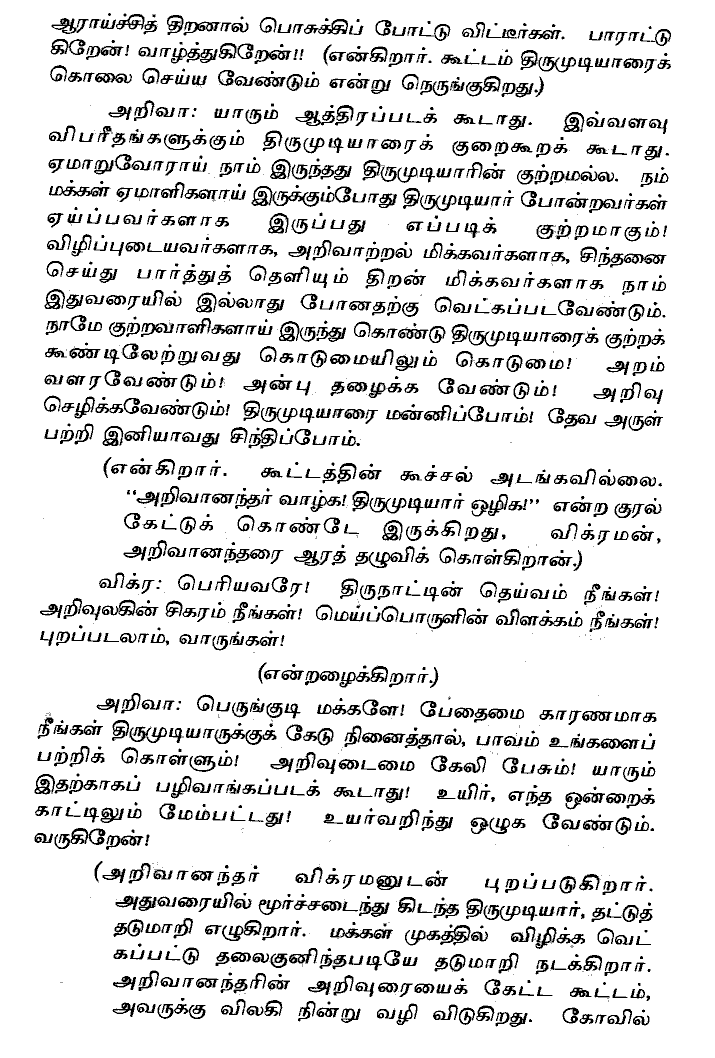 ஆராய்ச்சித் திறனால் பொசுக்கிப் போட்டு விட்டீர்கள். பாராட்டு
கிறேன்! வாழ்த்துகிறேன்!! (என்கிறார். கூட்டம் திருமுடியாரைக்
கொலை செய்ய வேண்டும் என்று நெருங்குகிறது.)
அறிவா: யாரும் ஆத்திரப்படக் கூடாது. இவ்வளவு
விபரீதங்களுக்கும் திருமுடியாரைக் குறைகூறக் கூடாது.
ஏமாறுவோராய் நாம் இருந்தது திருமுடியாரின் குற்றமல்ல. நம்
மக்கள் ஏமாளிகளாய் இருக்கும்போது திருமுடியார் போன்றவர்கள்
ஏய்ப்பவர்களாக இருப்பது எப்படிக் குற்றமாகும்!
விழிப்புடையவர்களாக, அறிவாற்றல் மிக்கவர்களாக, சிந்தனை
செய்து பார்த்துத் தெளியும் திறன் மிக்கவர்களாக நாம்
இதுவரையில் இல்லாது போனதற்கு வெட்கப்படவேண்டும்.
நாமே குற்றவாளிகளாய் இருந்து கொண்டு திருமுடியாரைக் குற்றக்
கூண்டிலேற்றுவது கொடுமையிலும் கொடுமை! அறம்
வளரவேண்டும்! அன்பு தழைக்க வேண்டும்! அறிவு
செழிக்கவேண்டும்! திருமுடியாரை மன்னிப்போம்! தேவ அருள்
பற்றி இனியாவது சிந்திப்போம்.
(என்கிறார். கூட்டத்தின் கூச்சல் அடங்கவில்லை.
“அறிவானந்தர் வாழ்க! திருமுடியார் ஒழிக!” என்ற குரல்
கேட்டுக் கொண்டே இருக்கிறது, விக்ரமன்,
அறிவானந்தரை ஆரத் தழுவிக் கொள்கிறான்.)
விக்ர: பெரியவரே! திருநாட்டின் தெய்வம் நீங்கள்!
அறிவுலகின் சிகரம் நீங்கள்! மெய்ப்பொருளின் விளக்கம் நீங்கள்!
புறப்படலாம், வாருங்கள்!
(என்றழைக்கிறார்.)
அறிவா: பெருங்குடி மக்களே! பேதைமை காரணமாக
நீங்கள் திருமுடியாருக்குக் கேடு நினைத்தால், பாவம் உங்களைப்
பற்றிக் கொள்ளும்! அறிவுடைமை கேலி பேசும்! யாரும்
இதற்காகப் பழிவாங்கப்படக் கூடாது! உயிர், எந்த ஒன்றைக்
காட்டிலும் மேம்பட்டது! உயர்வறிந்து ஒழுக வேண்டும்.
வருகிறேன்!
(அறிவானந்தர் விக்ரமனுடன் புறப்படுகிறார்.
அதுவரையில் மூர்ச்சடைந்து கிடந்த திருமுடியார், தட்டுத்
தடுமாறி எழுகிறார். மக்கள் முகத்தில் விழிக்க வெட்
கப்பட்டு தலைகுனிந்தபடியே தடுமாறி நடக்கிறார்.
அறிவானந்தரின் அறிவுரையைக் கேட்ட கூட்டம்,
அவருக்கு விலகி நின்று வழி விடுகிறது. கோவில்